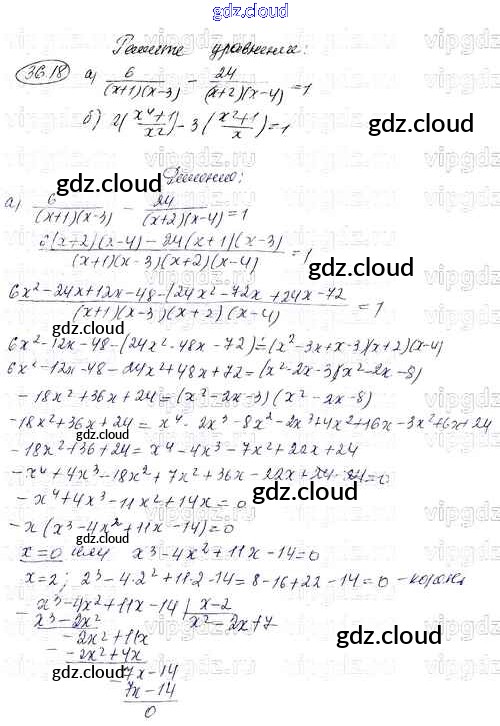 gdz.cloud
Решите уравнения:
36.18 а) 6/((x+1)(x-3)) - 24/((x+2)(x-4)) = 1
б) 2((x⁴+1)/x²) - 3((x²+1)/x) = 1
Решение:
а) 6/((x+1)(x-3)) - 24/((x+2)(x-4)) = 1
(6(x+2)(x-4) - 24(x+1)(x-3))/((x+1)(x-3)(x+2)(x-4)) = 1
(6x²-24x+12x-48-(24x²-72x+24x-72)/((x+1)(x-3)(x+2)(x-4)) = 1
6x²-12x-48-(24x²-48x-72)=(x²-3x+x-3)(x+2)(x-4)
6x²-12x-48-24x²+48x+72=(x²-2x-3)(x²-2x-8)
-18x²+36x+24=(x²-2x-3)(x²-2x-8)
-18x²+36x+24=x⁴-2x³-8x²-2x³+4x²+16x-3x²+6x+24
-18x²+36+24=x⁴-4x³-7x²+22x+24
-x⁴+4x³-18x²+7x²+36x-22x+24-24=0
-x⁴+4x³-11x²+14x=0
-x(x³-4x²+11x-14)=0
x=0 или x³-4x²+11x-14=0
x=2; 2³-4·2²+11·2-14=8-16+22-14=0 - корень
- x³-4x²+11x-14 | x-2
x³-2x² x²-2x+7
- -2x²+11x
-2x²+4x
- 7x-14
7x-14
0
gdz.cloud